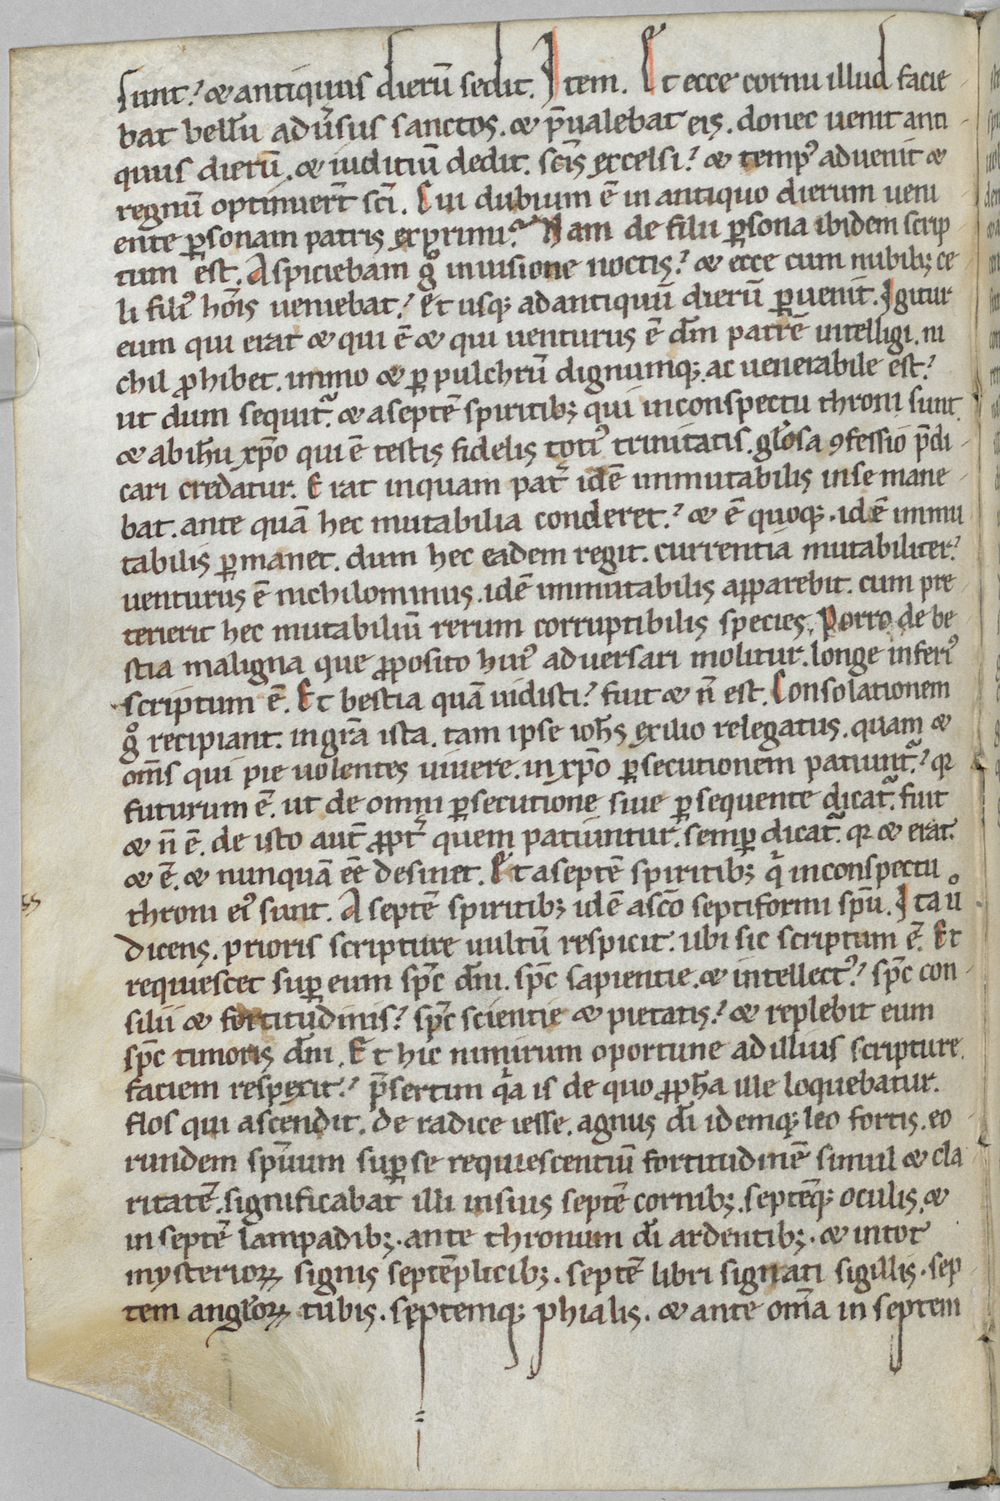 sunt? & antiquus dierū sedit. Item. Et ecce cornu illud facie
bat bellū aduersus sanctos. & p̄ualebat eis. donec uenit anti
quus dierū. & iuditiū dedit. sc̄is excelsi? & temp᾽ aduenit &
regnū optinuer̄t sc̄i. Cui dubium ē in antiquo dierum ueni
ente ꝑsonam patris exprimi? Nam de filii ꝑsona ibidem scrip
tum est. Aspiciebam gͦ in uisione noctis? & ecce cum nubibꝫ ce
li fili᾽ hōis ueniebat? Et usqꝫ ad antiquū dierū ꝑuenit. Igitur
eum qui erat & qui ē & qui uenturus ē dn̄m patrē intelligi. ni
chil ꝓhibet. immo & ꝑpulchrū dignumqꝫ ac uenerabile est?
ut dum sequit᷑ & a septē spiritibꝫ qui in conspectu throni sunt.
& ab ih̄u xp̄o qui ē testis fidelis toti᾽ trinitatis. gl̄osa ꝯfessio p̄di
cari credatur. Erat inquam pat᷑ idē immutabilis in se mane
bat. ante quā hec mutabilia conderet? & ē quoqꝫ. idē immu
tabilis ꝑmanet. dum hec eadem regit. currentia mutabiliter?
uenturus ē nichilominus. idē immutabilis apparebit. cum pre
terierit hec mutabiliū rerum corruptibilis species. Porro de be
stia maligna que ꝓposito hui᾽ aduersari molitur. longe inferi᾽
scriptum ē. Et bestia quā uidisti? fuit & n̄ est. Consolationem
gͦ recipiant. in gr̄a ista. tam ipse ioh̄s exilio relegatus. quam &
om̄s qui pie uolentes uiuere. in xp̄o ꝑsecutionem patiunt᷑? qꝛ
futurum ē. ut de omni ꝑsecutione siue ꝑsequente dicat᷑. fuit
& n̄ ē. de isto aut̄ ꝓpt᷑ quem patiuntur. semꝑ dicat᷑. qꝛ & erat.
& ē. & nunquā eē desinet. Et a septē spiritibꝫ qͥ in conspectu
throni ei᾽ sunt. A septē spiritibꝫ idē a sc̄o septiformi spū. Ita uͦ
dicens. prioris scripture uultū respicit. ubi sic scriptum ē. Et
requiescet suꝑ eum spc̄ dn̄i. spc̄ sapientie. & intellect᾽? spc̄ con
silii & fortitudinis? spc̄ scientie & pietatis? & replebit eum
spc̄ timoris dn̄i. Et hic nimirum oportune ad illius scripture
faciem respexit? p̄sertim qͣa is de quo ꝓph̄a ille loquebatur.
flos qui ascendit. de radice iesse. agnus dī idemqꝫ leo fortis. eo
rundem spirituum suꝑ se requiescentiū fortitudinē simul & cla
ritatē. significabat illi insius septē cornibꝫ. septēqꝫ oculis. &
in septē lampadibꝫ. ante thronum dī ardentibꝫ. & in tot
mysterioꝝ signis septēplicibꝫ. septē libri signati sigillis. sep
tem angl̄oꝝ tubis. septemqꝫ phialis. & ante om̄a in septem